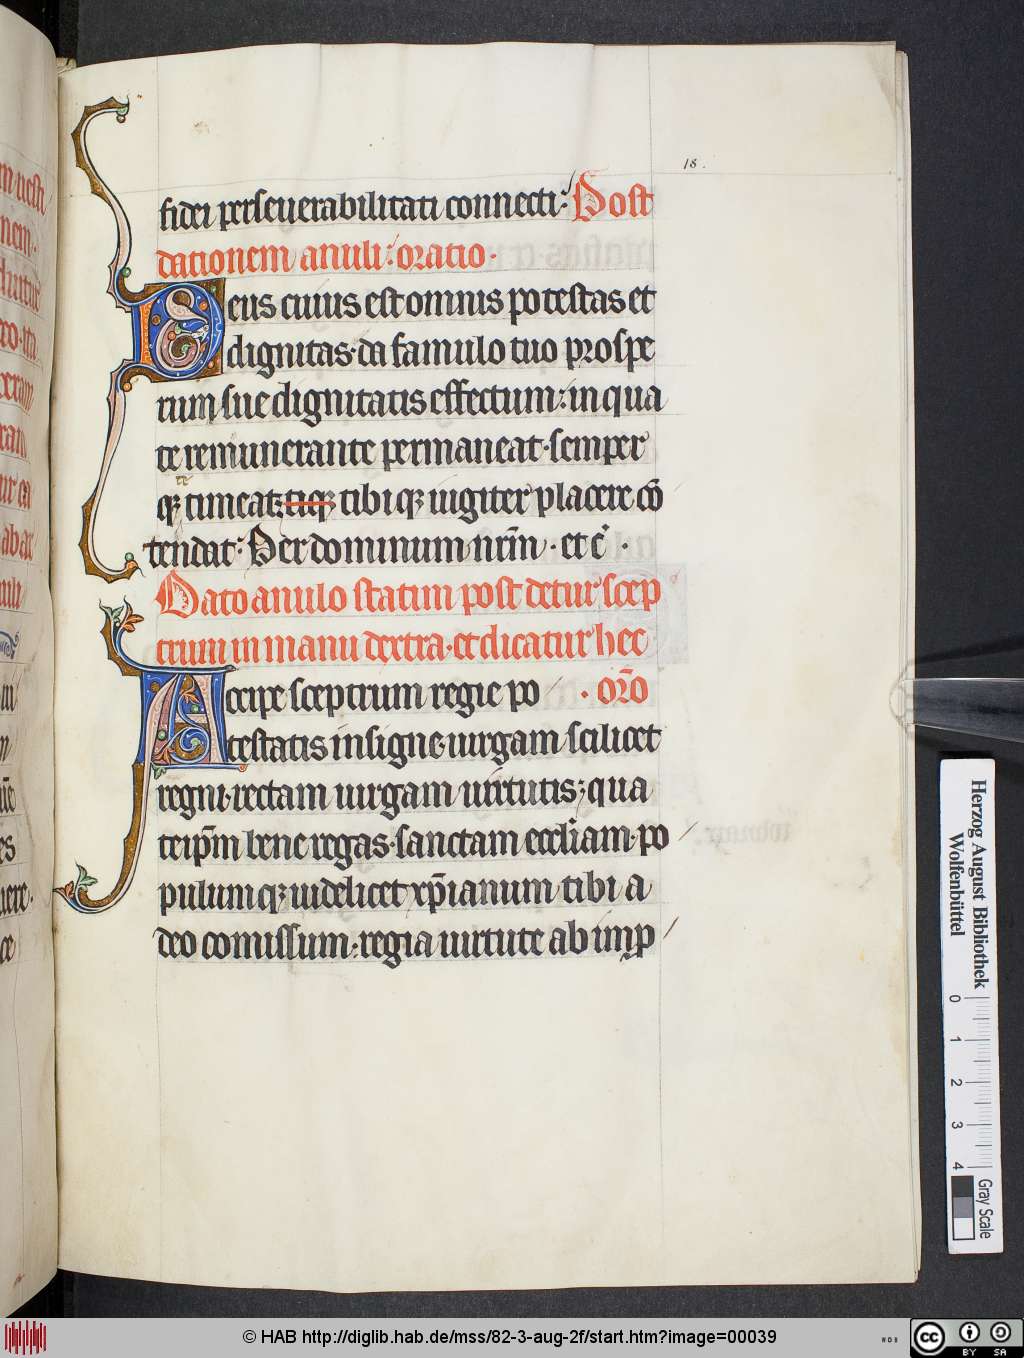 18.
fidei perseuerabilitati connecti. Post
dationem anuli. oratio.
Deus cuius est omnis potestas et
dignitas. da famulo tuo prospe
rum sue dignitatis effectum. in qua
te remunerante permaneat. semper
qꝫ timeat tiqꝫ tibiqꝫ iugiter placere cō
te
tendat. Per dominum nrm̄. et c̄.
Dato anulo statim post detur scep
trum in manu dextra. et dicatur hec
Accipe sceptrum regie po . or̄o
testatis insigne. uirgam scilicet
regni. rectam uirgam uirtutis; qua
teip̄m bene regas. sanctam eccl̄iam. po
pulumqꝫ uidelicet xp̄ianum tibi a
deo comissum. regia uirtute ab imꝑ
Herzog August Bibliothek
Wolfenbüttel
0 1 2 3 4
Gray Scale
© HAB http://diglib.hab.de/mss/82-3-aug-2f/start.htm?image=00039
WDB
cc BY SA